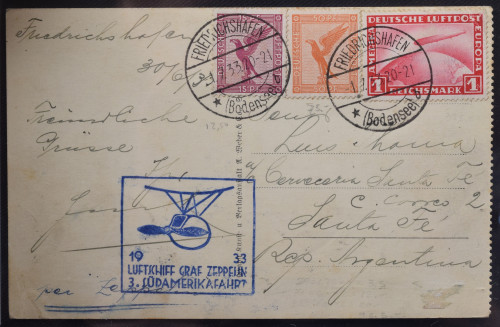 Friedrichshafen
30/6
Freundliche
Grüsse
FRIEDRICHSHAFEN
33. 20-21
* (Bodensee)
DEUTSCHE LUFTPOST
15 PF
FRIEDRICHSHAFEN
20-21
* (Bodensee)
DEUTSCHE LUFTPOST
EUROPA
AMERIKA
1 REICHSMARK 1
Luis
Cervecería Santa Fé
C. Correo 2.
Santa Fé
Rep. Argentina
19 33
LUFTSCHIFF GRAF ZEPPELIN
3. SÜDAMERIKAFAHRT
per